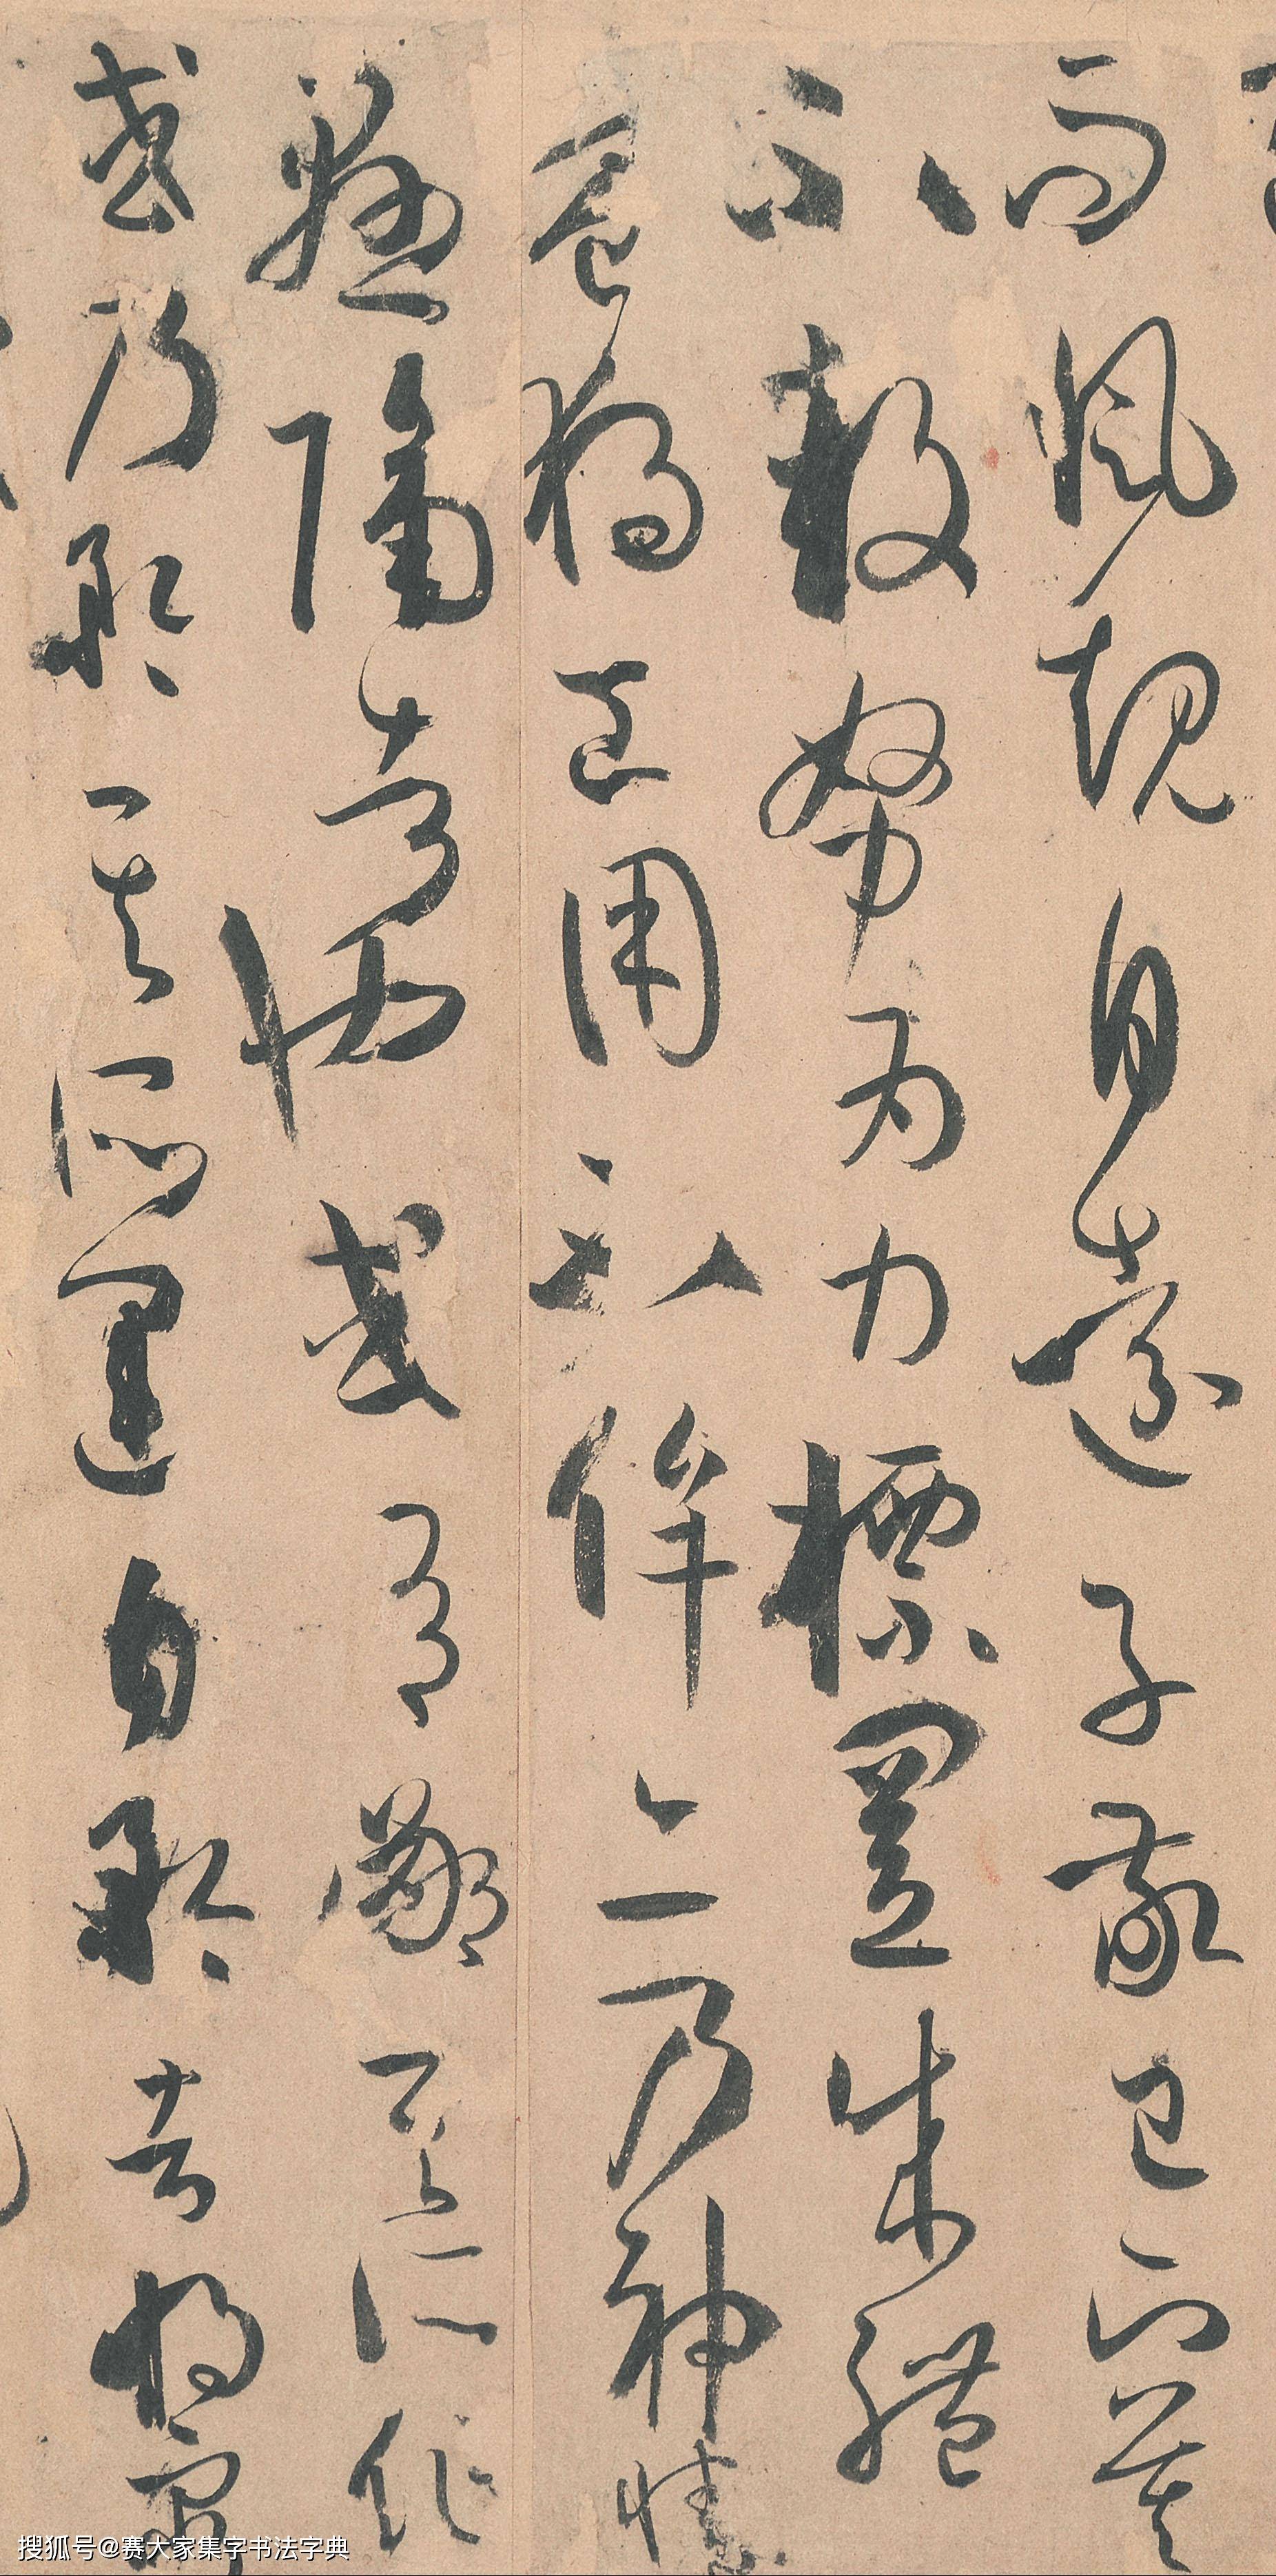 而風規自遠子敬已下莫
不鼓努為力標置成體
豈獨工用不侔亦乃神情
懸隔者也或有鄙其所作
或乃矜其所運自矜者將窮
搜狐号@赛大家集字书法字典